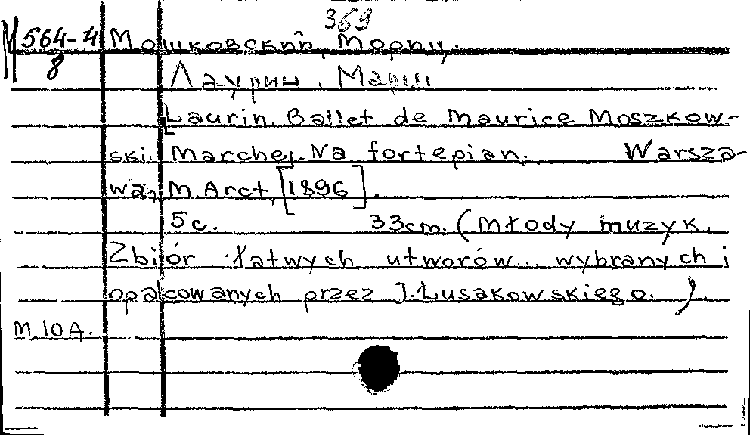 369
M 564-4 Мошковский, Мориц.
8 Лаурин. Марш
Laurin. Ballet de Maurice Moszkow-
ski. Marche. Na fortepian. Warsza-
wa, M. Arct, [1896].
5c. 33cm. (Młody muzyk.
Zbiór łatwych utworów wybranych i
opacowanych przez J. Łusakowskiego.)
M. 10A.